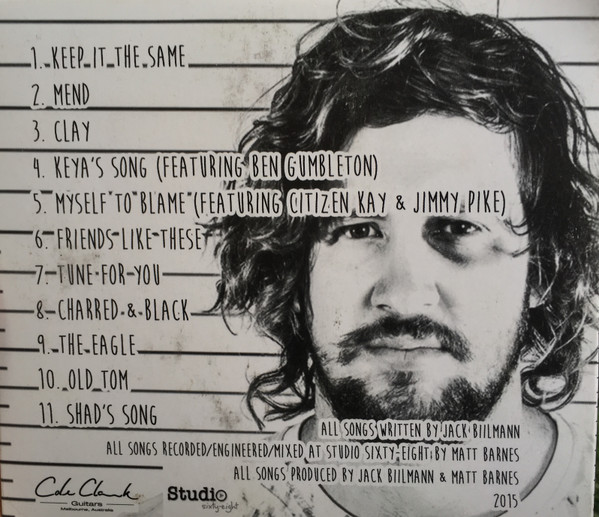 1. KEEP IT THE SAME
2. MEND
3. CLAY
4. KEYA'S SONG (FEATURING BEN GUMBLETON)
5. MYSELF TO BLAME (FEATURING CITIZEN KAY & JIMMY PIKE)
6. FRIENDS LIKE THESE
7. TUNE FOR YOU
8. CHARRED & BLACK
9. THE EAGLE
10. OLD TOM
11. SHAD'S SONG
ALL SONGS WRITTEN BY JACK BIILMANN
ALL SONGS RECORDED/ENGINEERED/MIXED AT STUDIO SIXTY-EIGHT BY MATT BARNES
ALL SONGS PRODUCED BY JACK BIILMANN & MATT BARNES
2015
Cole Clark
Guitars
Melbourne, Australia
Studio
sixty-eight